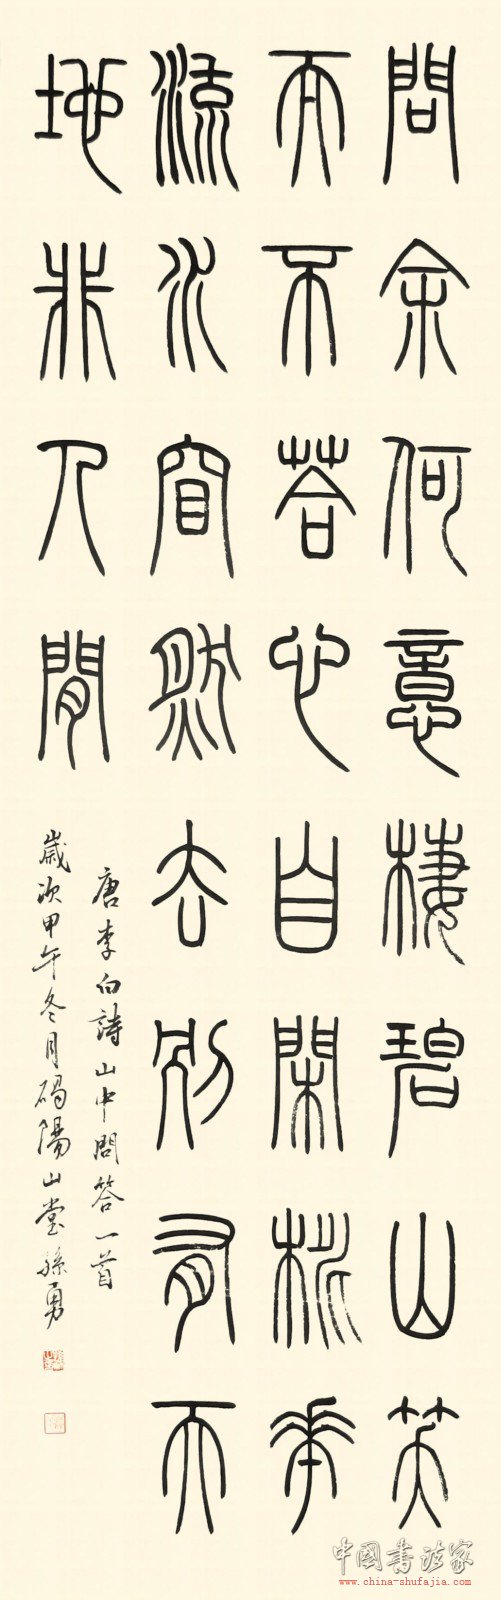 問余何意棲碧山笑
而不荅心自閑桃華
流水窅然去別有天
地非人閒
唐李白詩山中問答一首
歲次甲午冬月陽山堂孫勇
中國書法家
www.china-shufajia.com